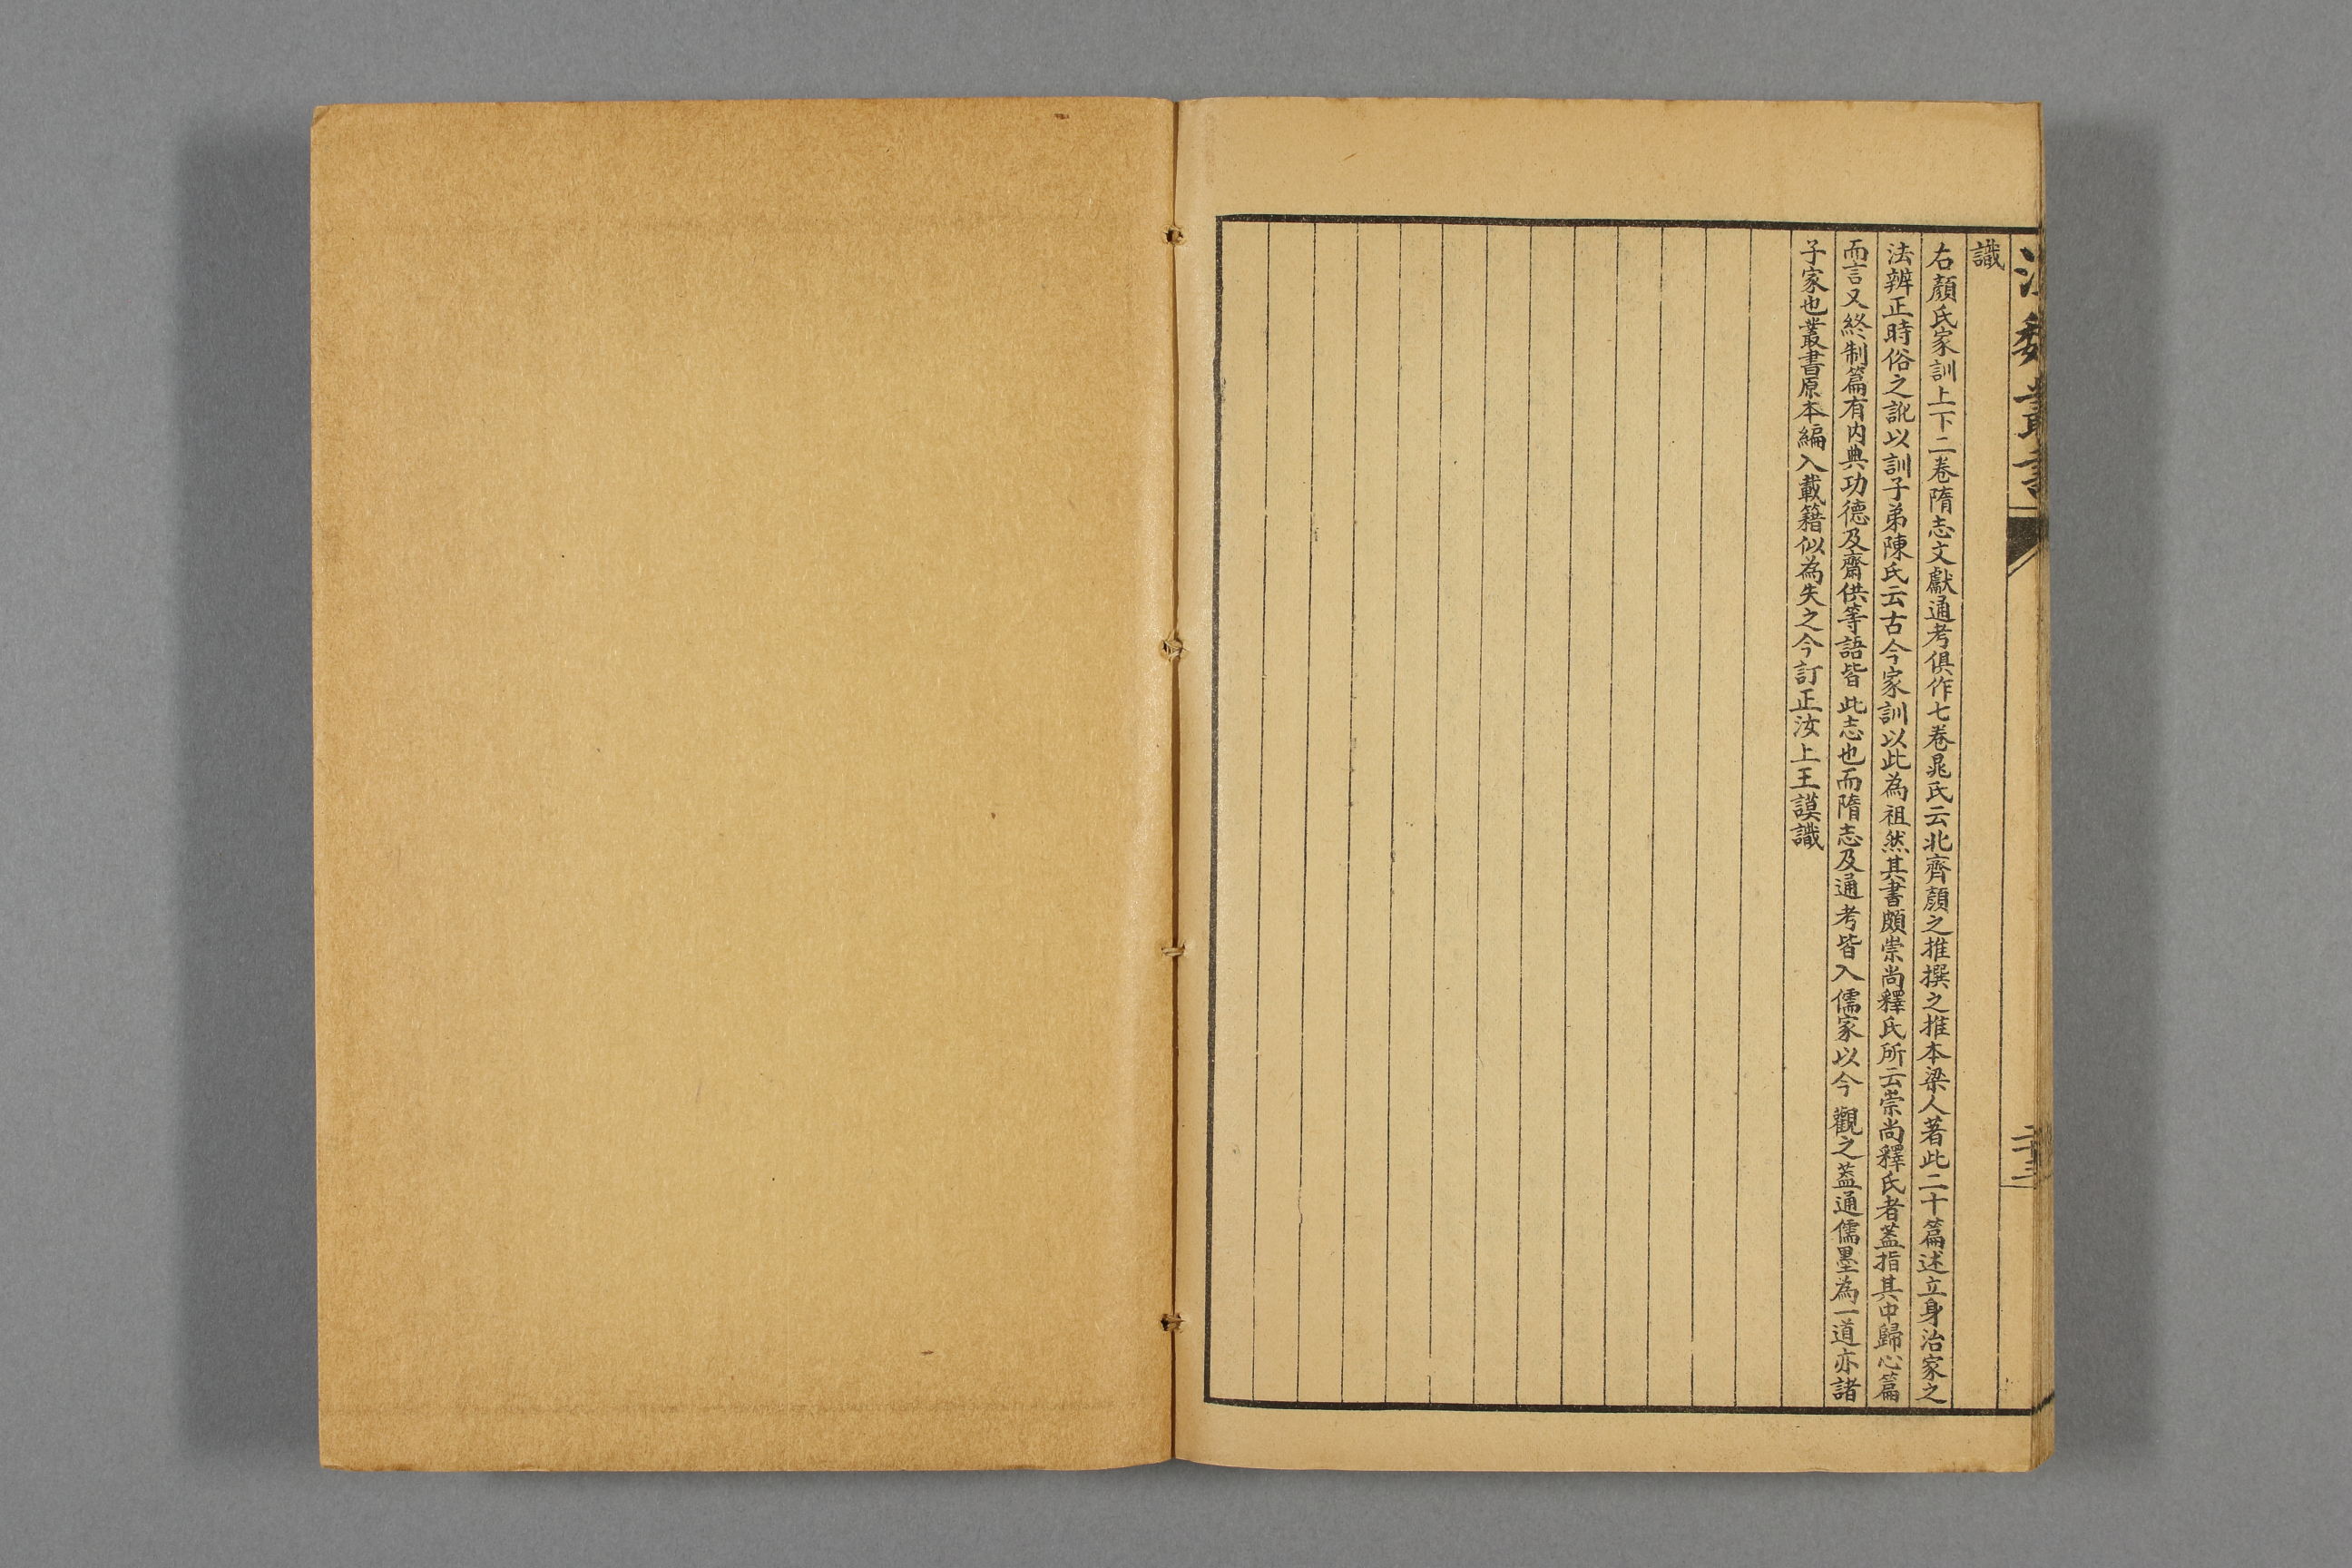 漢魏叢書
二十三
識
右顏氏家訓上下二卷隋志文獻通考俱作七卷晁氏云北齊顏之推撰之推本梁人著此二十篇述立身治家之
法辨正時俗之訛以訓子弟陳氏云古今家訓以此為祖然其書頗崇尚釋氏所云崇尚釋氏者蓋指其中歸心篇
而言又終制篇有內典功德及齋供等語皆此志也而隋志及通考皆入儒家以今觀之蓋通儒墨為一道亦諸
子家也叢書原本編入載籍似為失之今訂正汝上王謨識